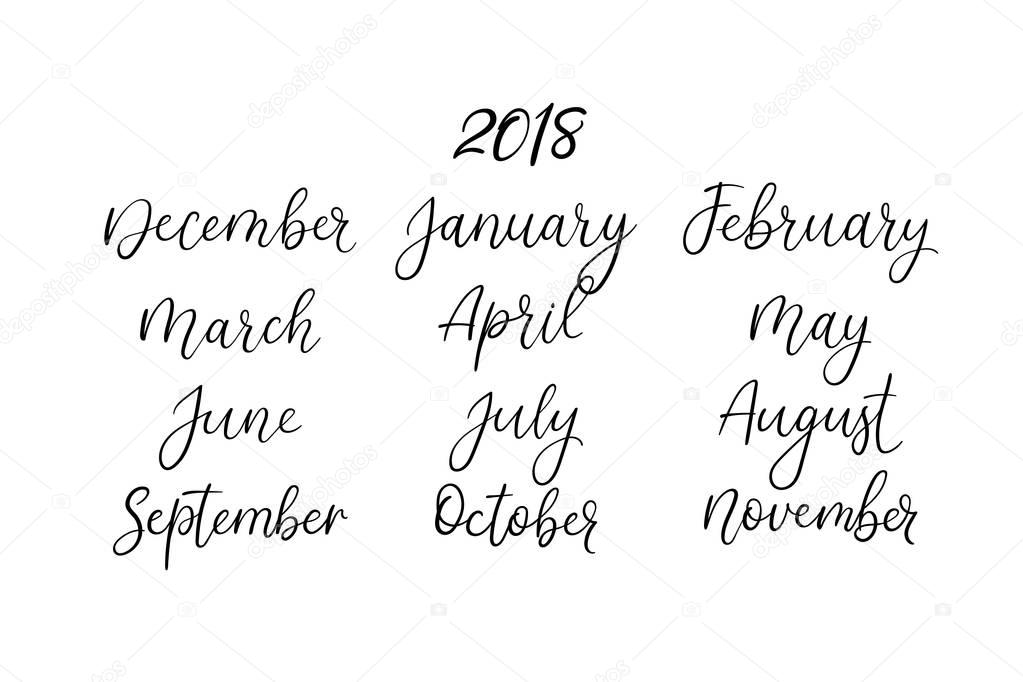 2018
December January February
March April May
June July August
September October November
depositphotos